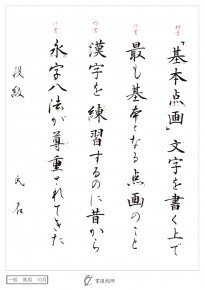 楷書
「基本点画」文字を書く上で
行書
最も基本となる点画のこと
楷書
漢字を練習するのに昔から
行書
永字八法が尊重されてきた
段級 氏名
一般 実用 10月